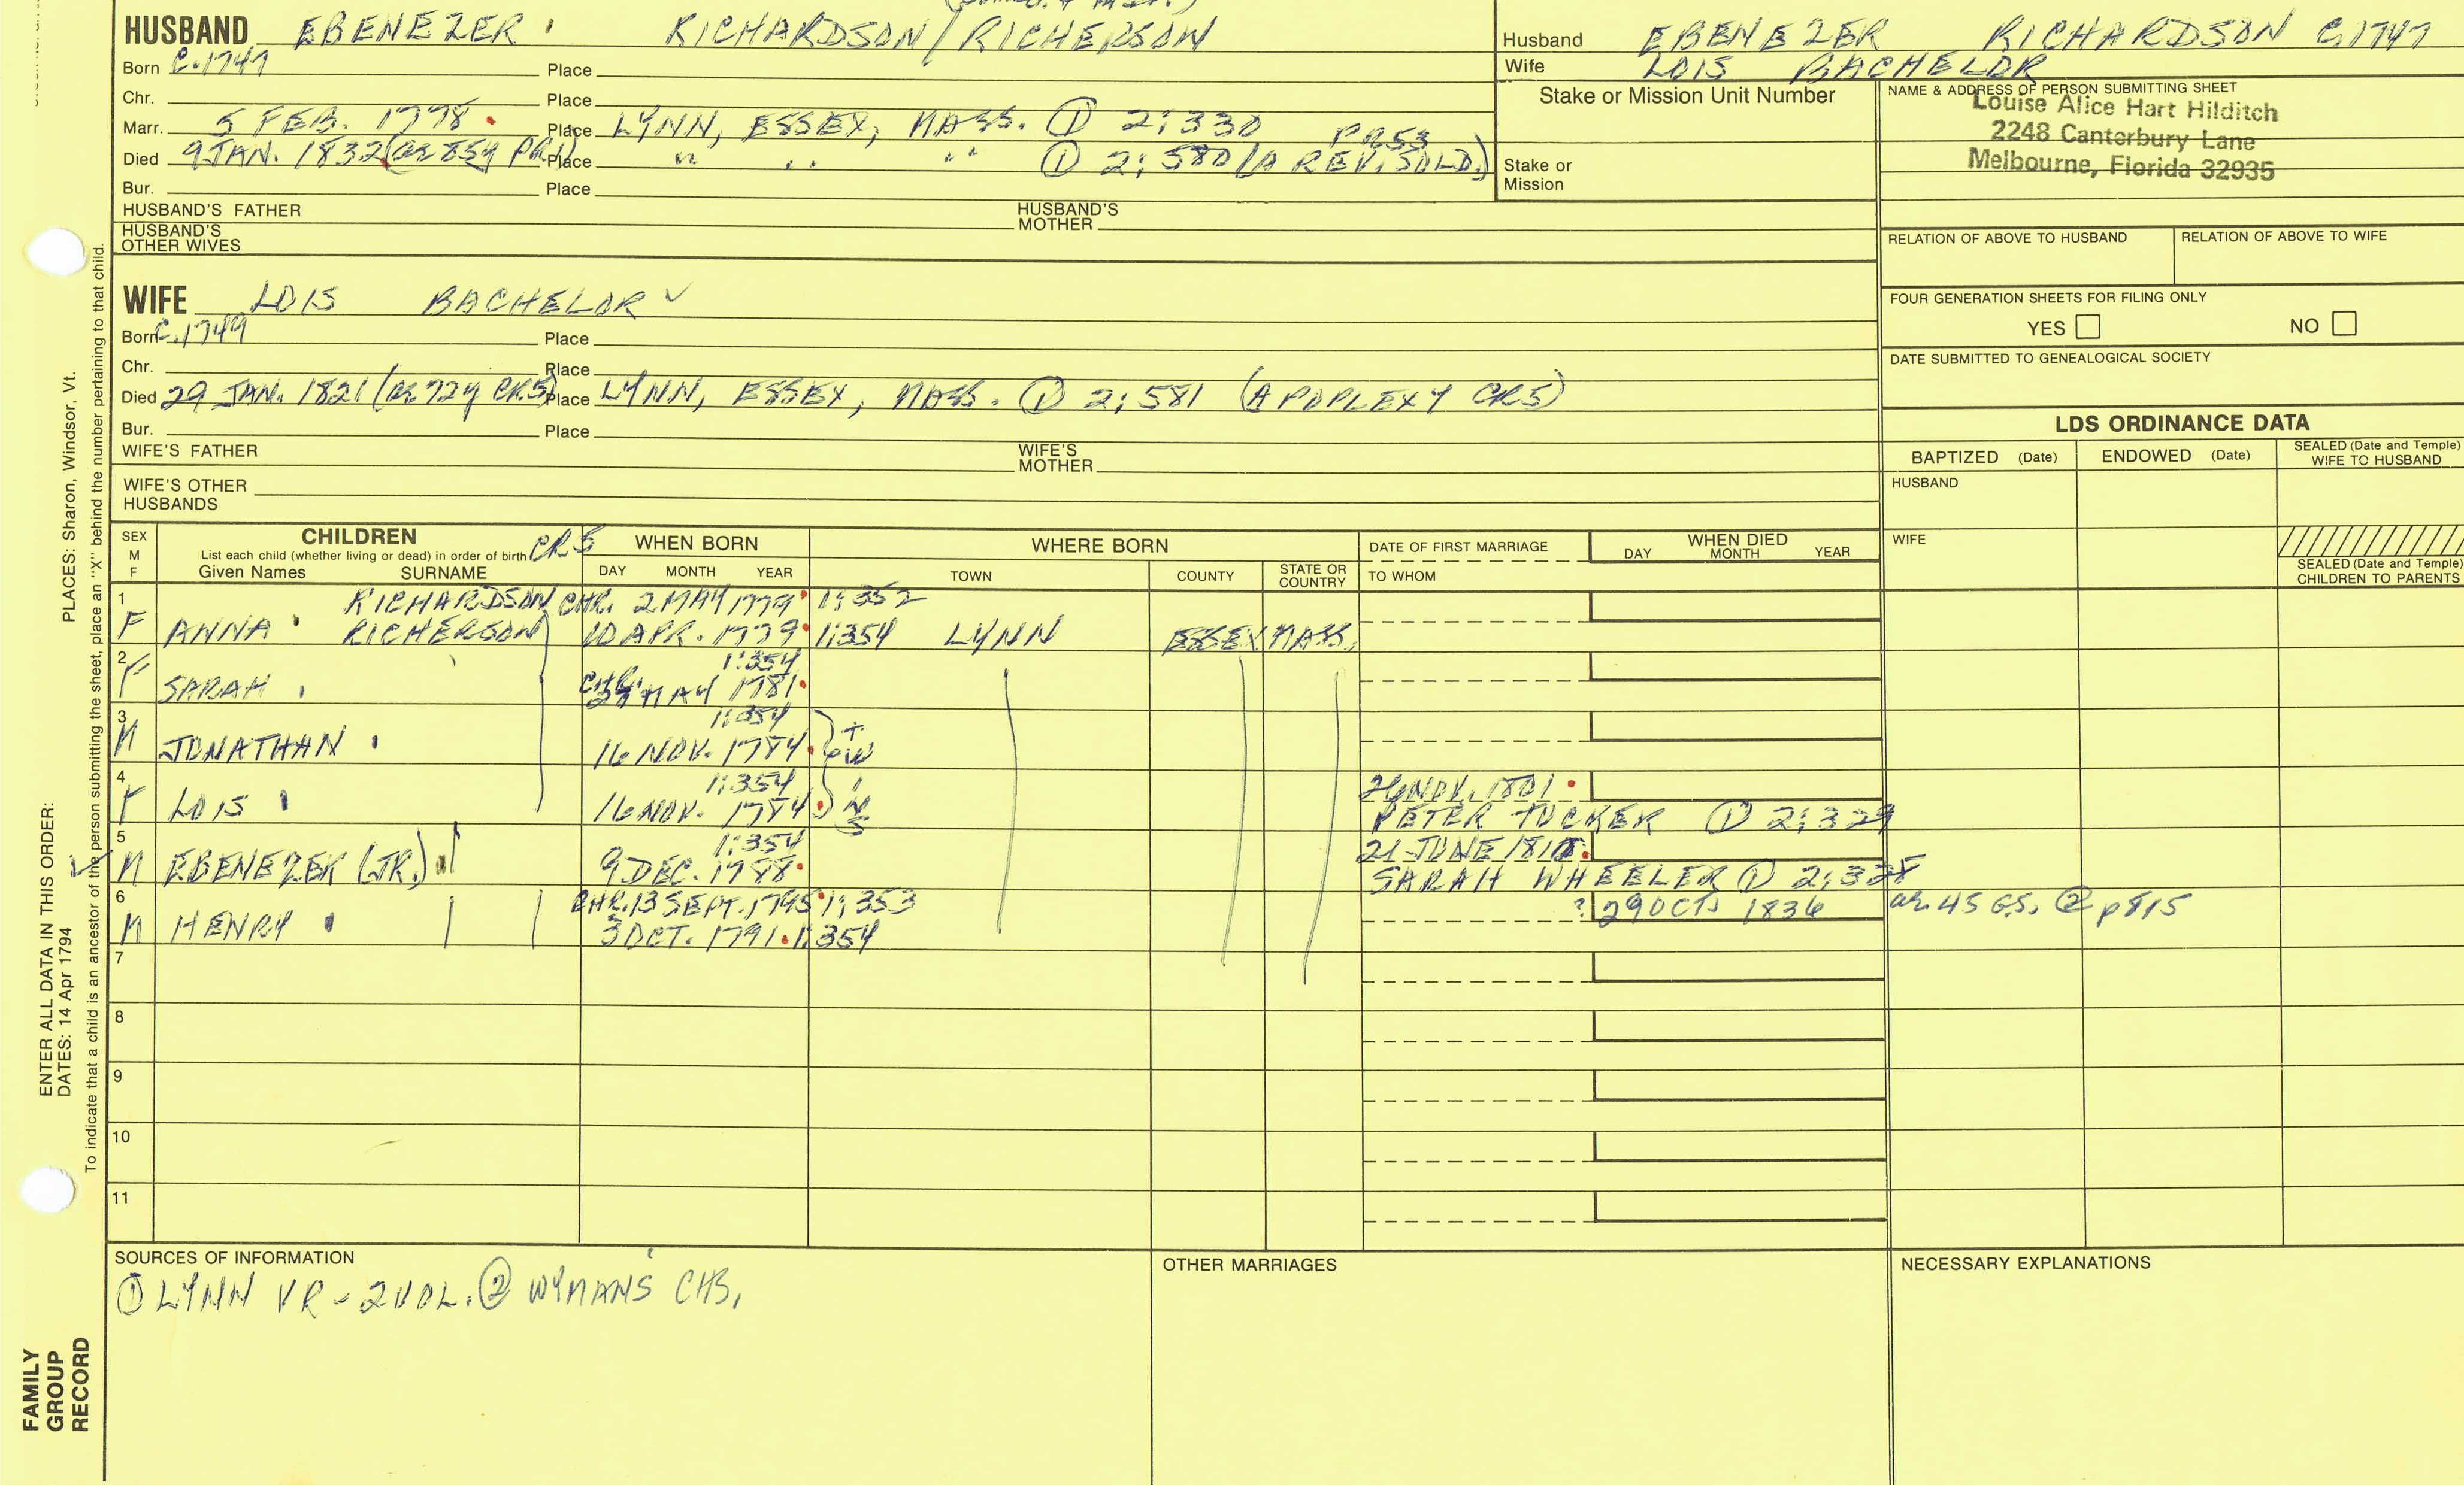 HUSBAND EBENEZER RICHARDSON/RICHERSON
Born C.1747 Place
Chr. Place
Marr. 5 FEB. 1778 Place LYNN, ESSEX, MASS. ① 2:330
Died 9 JAN. 1832 (ae 85y PR1) Place " " " ① 2:580 (A REV. SOLD.) PR53
Bur. Place
HUSBAND'S FATHER HUSBAND'S MOTHER
HUSBAND'S OTHER WIVES
Husband EBENEZER RICHARDSON C.1747
Wife LOIS BACHELOR
Stake or Mission Unit Number
Stake or Mission
NAME & ADDRESS OF PERSON SUBMITTING SHEET
Louise Alice Hart Hilditch
2248 Canterbury Lane
Melbourne, Florida 32935
RELATION OF ABOVE TO HUSBAND RELATION OF ABOVE TO WIFE
FOUR GENERATION SHEETS FOR FILING ONLY
YES NO
DATE SUBMITTED TO GENEALOGICAL SOCIETY
WIFE LOIS BACHELOR
Born C.1749 Place
Chr. Place
Died 29 JAN. 1821 (ae 72y CR5) Place LYNN, ESSEX, MASS. ① 2:581 (APOPLEXY CR5)
Bur. Place
WIFE'S FATHER WIFE'S MOTHER
WIFE'S OTHER HUSBANDS
LDS ORDINANCE DATA
BAPTIZED (Date) ENDOWED (Date) SEALED (Date and Temple) WIFE TO HUSBAND
HUSBAND
WIFE
SEALED (Date and Temple) CHILDREN TO PARENTS
SEX M F
CHILDREN CR5
List each child (whether living or dead) in order of birth
Given Names SURNAME
WHEN BORN
DAY MONTH YEAR
WHERE BORN
TOWN COUNTY STATE OR COUNTRY
DATE OF FIRST MARRIAGE
TO WHOM
WHEN DIED
DAY MONTH YEAR
1 RICHARDSON CHR. 2 MAY 1779 1:352
F ANNA RICHERSON 10 APR. 1779 1:354 LYNN ESSEX MASS.
2 1:354
F SARAH CHR. MAY 1781
3 1:354
M JONATHAN 16 NOV. 1784
4 1:354 26 NOV. 1801
F LOIS 16 NOV. 1784 PETER TUCKER ① 2:329
5 1:354 21 JUNE
M EBENEZER (JR.) 9 DEC. 1788 SARAH WHEELER ① 2:328
6 CHR. 13 SEPT. 1795 1:353 ? 29 OCT. 1836 ae. 45 G.S. ② p 815
M HENRY 3 OCT. 1791 1:354
7
8
9
10
11
SOURCES OF INFORMATION
① LYNN VR - 2 VOL. ② WYMAN'S CHS.
OTHER MARRIAGES
NECESSARY EXPLANATIONS
ENTER ALL DATA IN THIS ORDER:
DATES: 14 Apr 1794 PLACES: Sharon, Windsor, Vt.
To indicate that a child is an ancestor of the person submitting the sheet, place an "X" behind the number pertaining to that child.
FAMILY
GROUP
RECORD